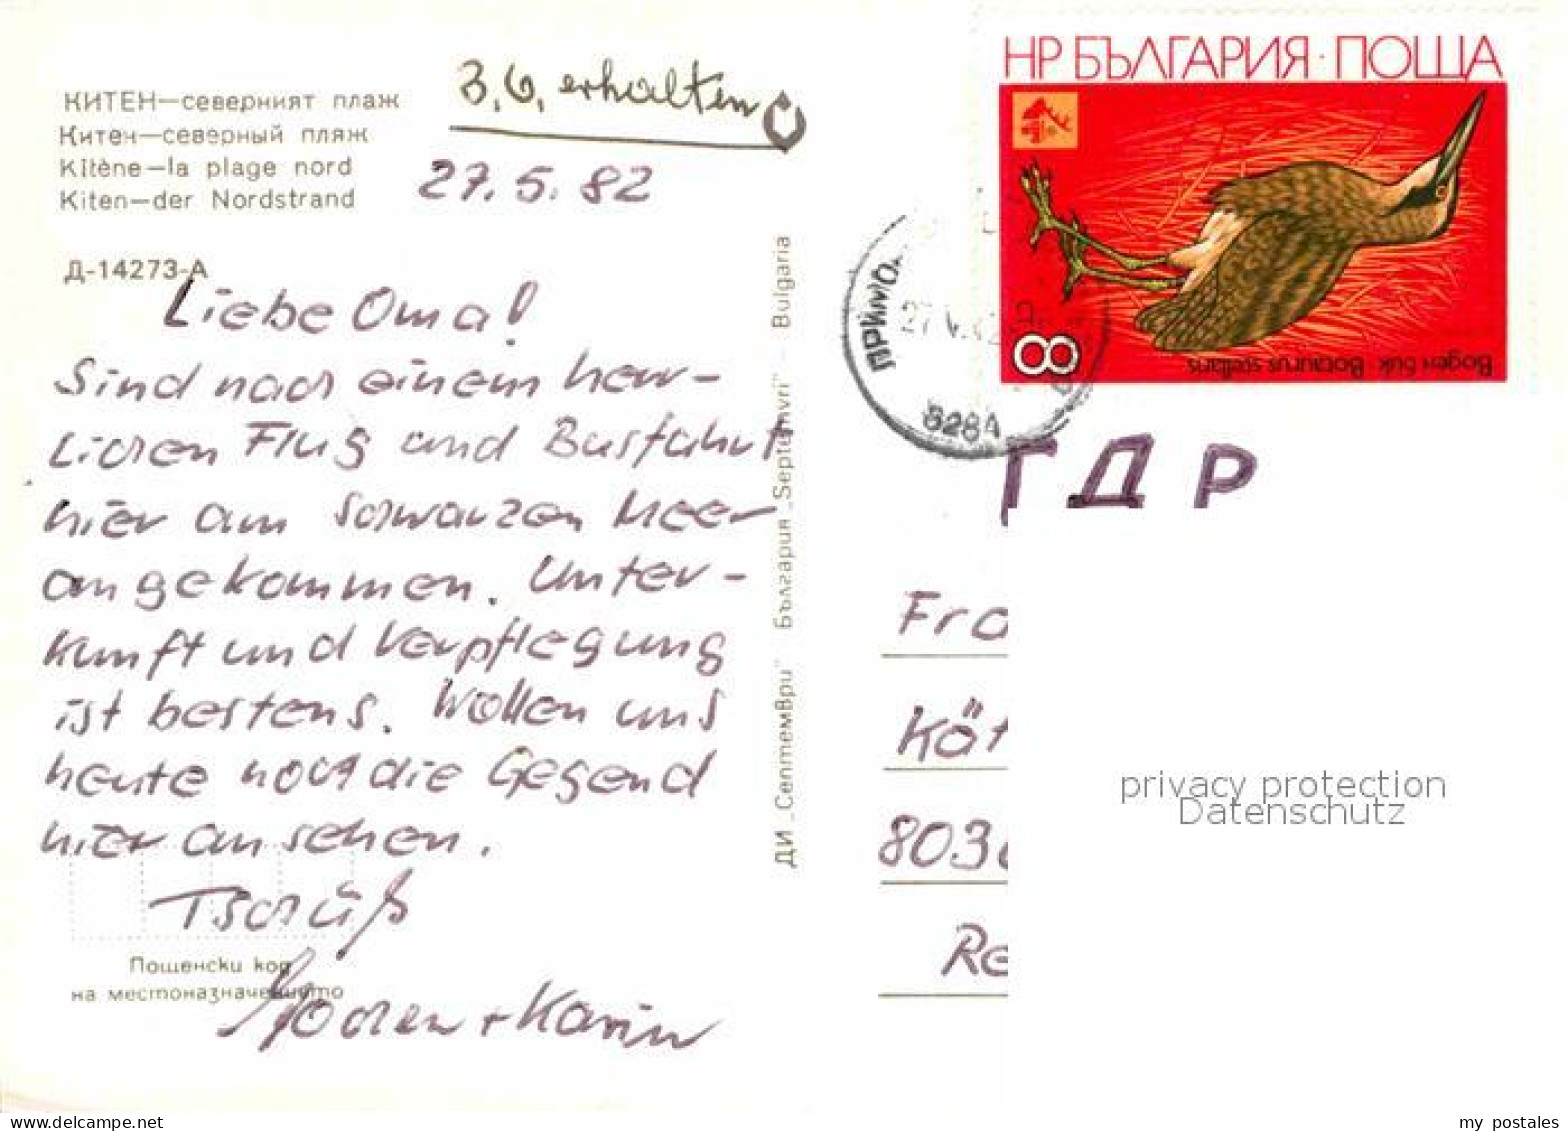 КИТЕН—северният плаж
Китен—северный пляж
Kitène—la plage nord
Kiten—der Nordstrand
Д-14273-А
3.6. erhalten
27.5.82
Liebe Oma!
Sind nach einem herr-
lichen Flug und Busfahrt
hier am Schwarzen Meer
angekommen. Unter-
kunft und Verpflegung
ist bestens. Wollen uns
heute noch die Gegend
hier ansehen.
Tschüß
Jochen + Karin
Пощенски код
на местоназначението
ДИ „Септември" България „Septemvri" - Bulgaria
НР БЪЛГАРИЯ · ПОЩА
8
Воден бик Botaurus stellaris
ПРИМО
27 V.82
8284
ГДР
Fra
Köt
8030
Re
privacy protection
Datenschutz
my postales
www.delcampe.net